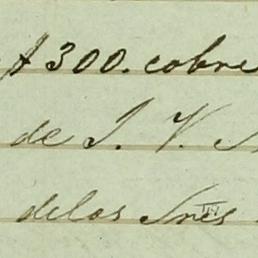 $300. cobre
de J. V.
de los Sres